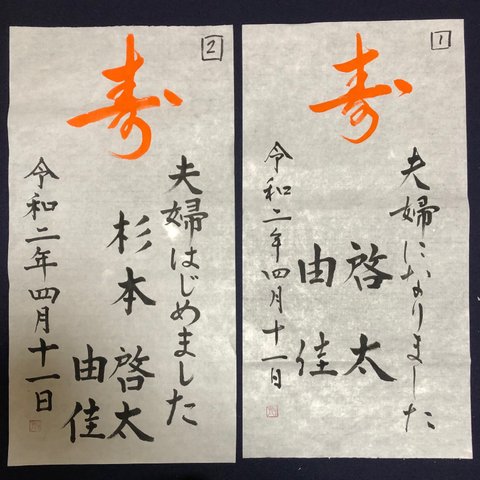 1
寿
夫婦になりました
啓太
由佳
令和二年四月十一日
2
寿
夫婦はじめました
杉本 啓太
由佳
令和二年四月十一日